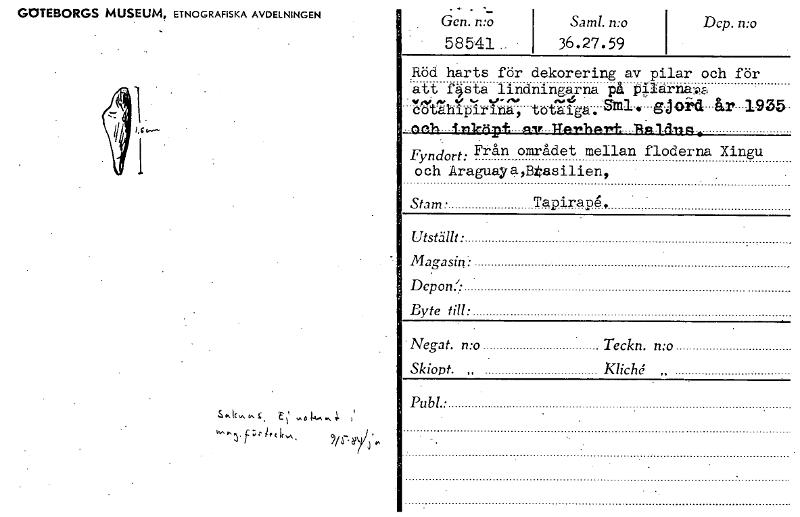 GÖTEBORGS MUSEUM, ETNOGRAFISKA AVDELNINGEN
Gen. n:o Saml. n:o Dep. n:o
58541 36.27.59
Röd harts för dekorering av pilar och för
att fästa lindningarna på pilarna.
totaiga. Sml. gjord år 1935
och inköpt av Herbert Baldus.
Fyndort: Från området mellan floderna Xingu
och Araguaya, Brasilien,
Stam: Tapirapé.
Utställt:
Magasin:
Depon.:
Byte till:
Negat. n:o Teckn. n:o
Skiopt. „ Kliché „
Publ.:
Saknas. Ej noterat i
mag.förteckn. 9/5-84/ja